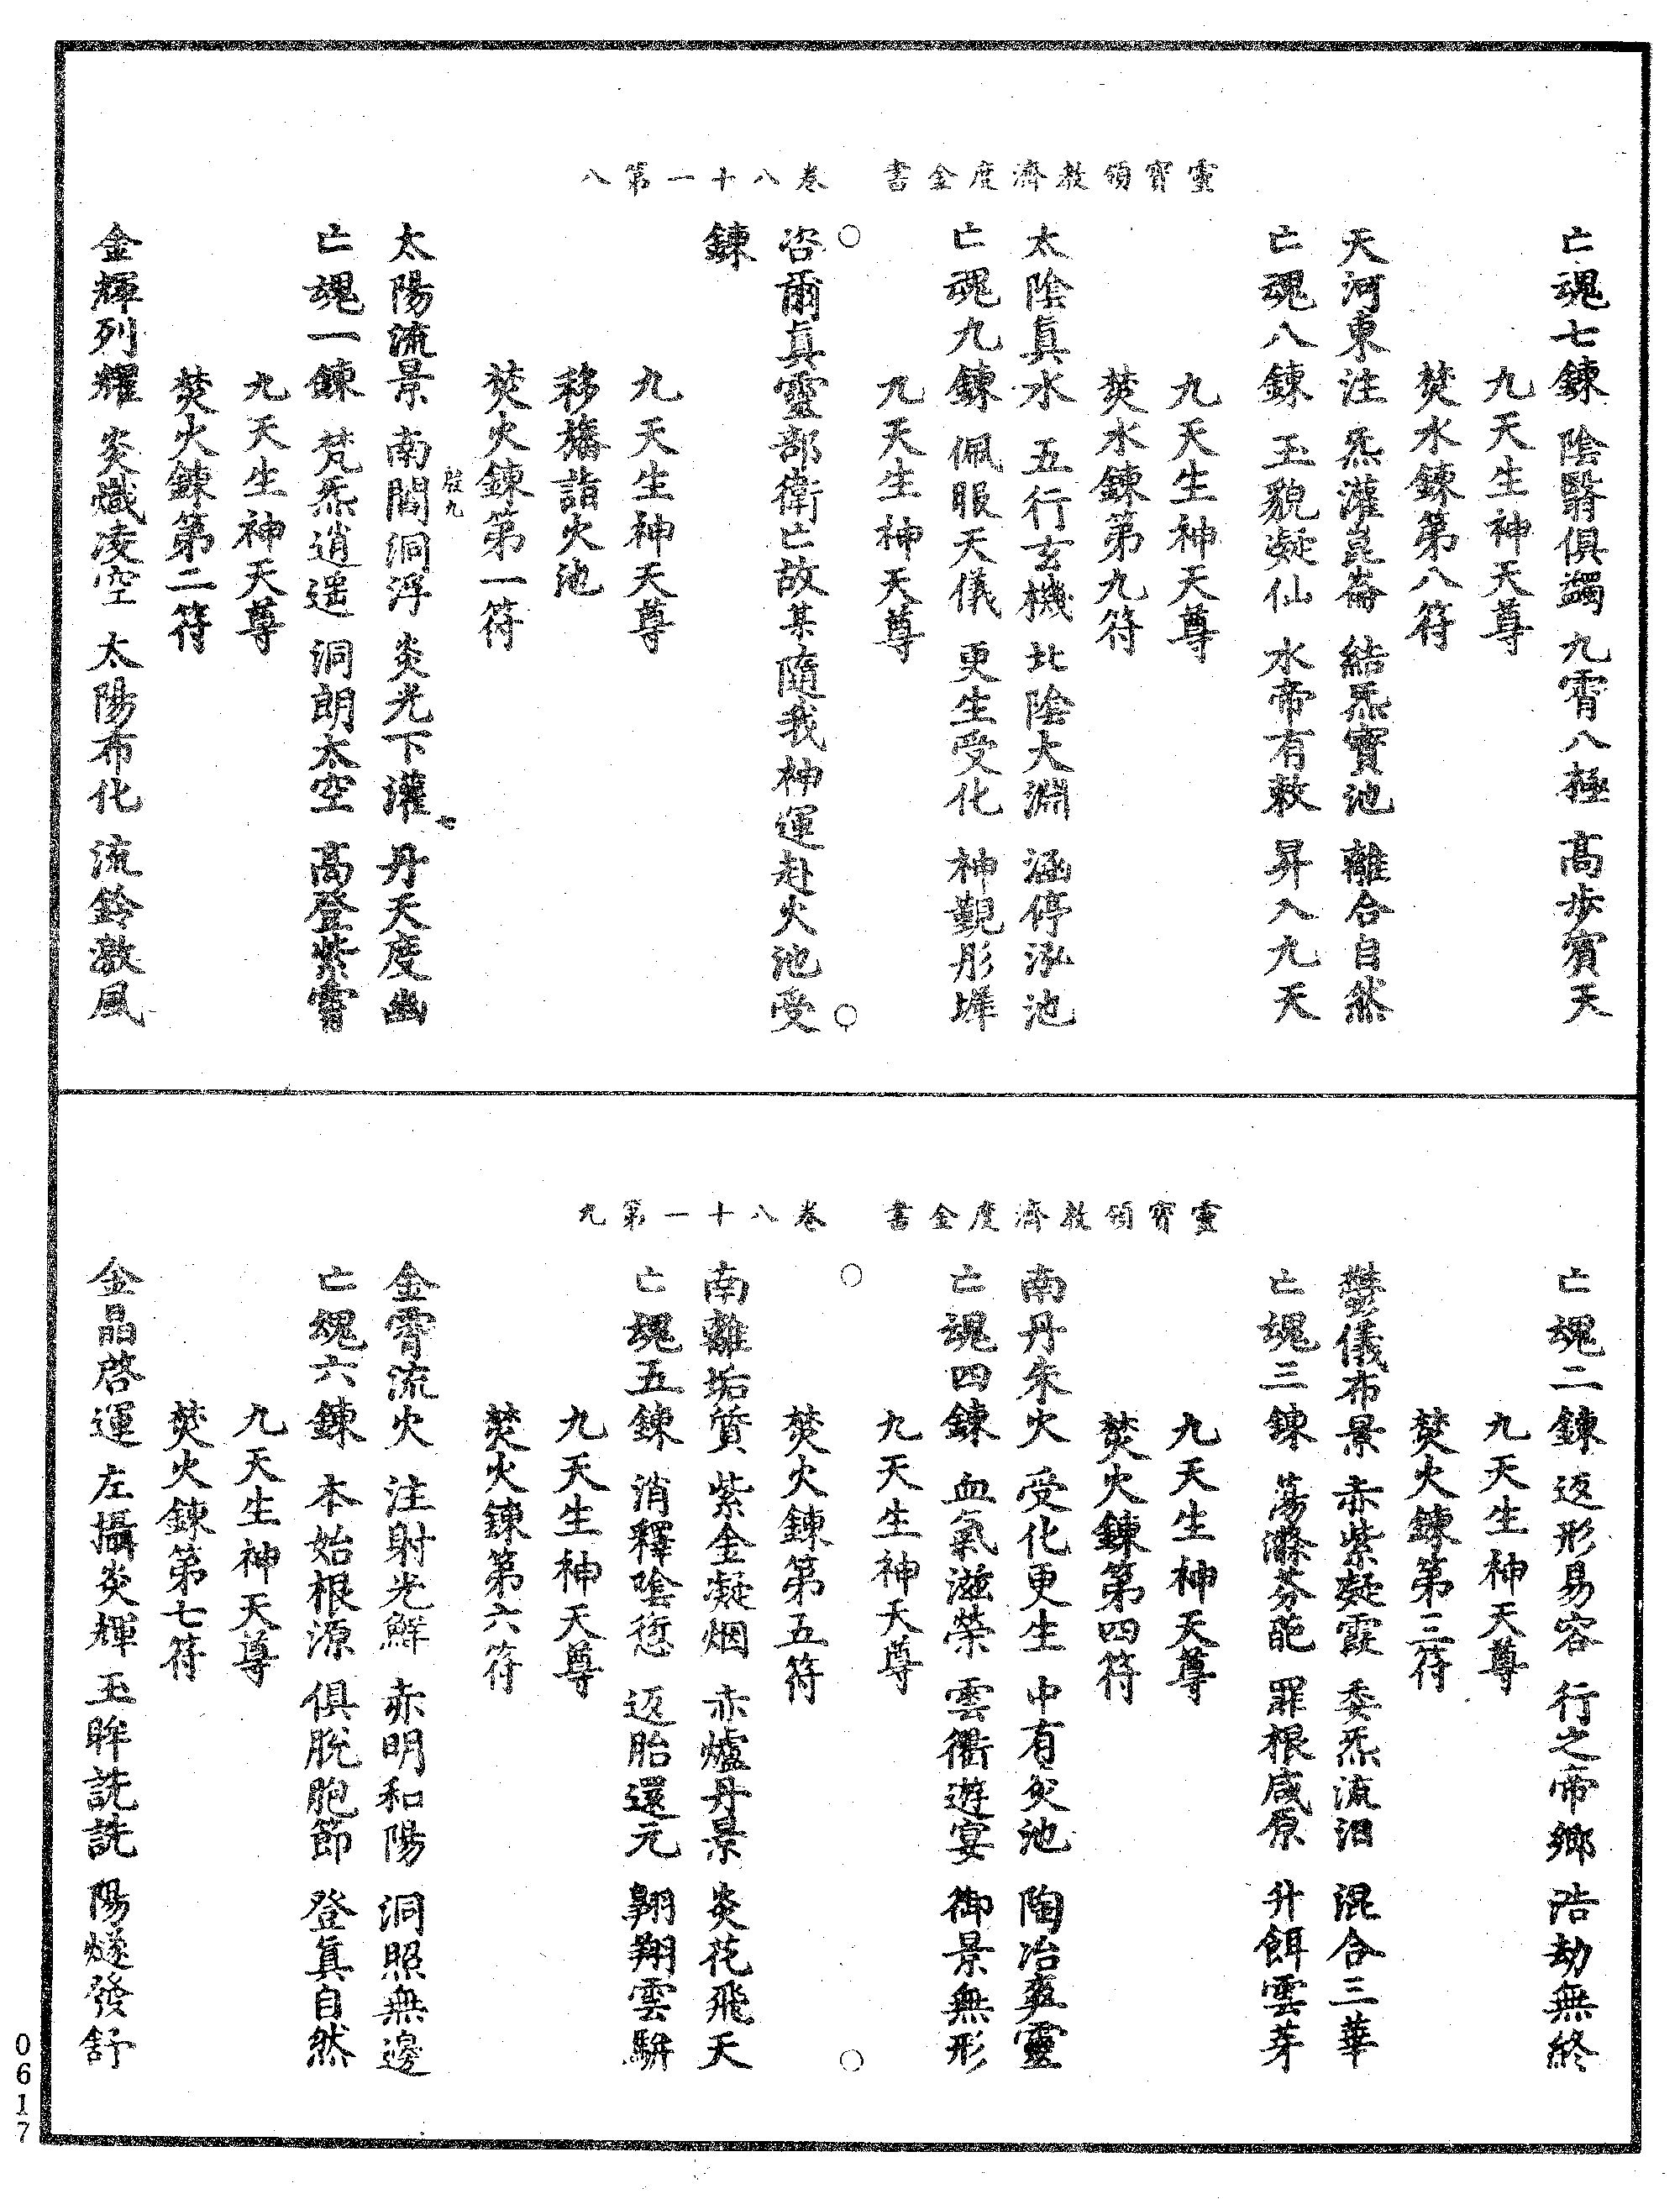 靈寶領教濟度金書　卷八十一第八
亡魂七鍊　陰翳俱蠲　九霄八極　高步賓天
九天生神天尊
焚水鍊第八符
天河東注　炁灌崑崙　結炁寶池　離合自然
亡魂八鍊　玉貌凝仙　水帝有敕　昇入九天
九天生神天尊
焚水鍊第九符
太陰真水　五行玄機　北陰大淵　涵停泓池
亡魂九鍊　佩服天儀　更生受化　神覲彤墀
九天生神天尊
○咨爾真靈部衛亡故某隨我神運赴火池受○
鍊
九天生神天尊
移旛詣火池
焚火鍊第一符
殷九　七
太陽流景　南閣洞浮　炎光下灌　丹天度幽
亡魂一鍊　梵炁逍遥　洞朗太空　高登紫霄
九天生神天尊
焚火鍊第二符
金輝列耀　炎熾凌空　太陽布化　流鈴激風
靈寶領教濟度金書　卷八十一第九
亡魂二鍊　返形易容　行之帝鄉　浩劫無終
九天生神天尊
焚火鍊第三符
鬱儀布景　赤紫凝霞　委炁流汨　混合三華
亡魂三鍊　蕩滌芬葩　罪根咸原　升餌雲芽
九天生神天尊
焚火鍊第四符
南丹朱火　受化更生　中有火池　陶冶爽靈
亡魂四鍊　血氣滋榮　雲衢遊宴　御景無形
九天生神天尊
○　○
焚火鍊第五符
南離垢質　紫金凝烟　赤爐丹景　炎花飛天
亡魂五鍊　消釋陰愆　返胎還元　翱翔雲駢
九天生神天尊
焚火鍊第六符
金霄流火　注射光鮮　赤明和陽　洞照無邊
亡魂六鍊　本始根源　俱脫胞節　登真自然
九天生神天尊
焚火鍊第七符
金晶啓運　左攝炎輝　玉眸詵詵　陽燧發舒
0617